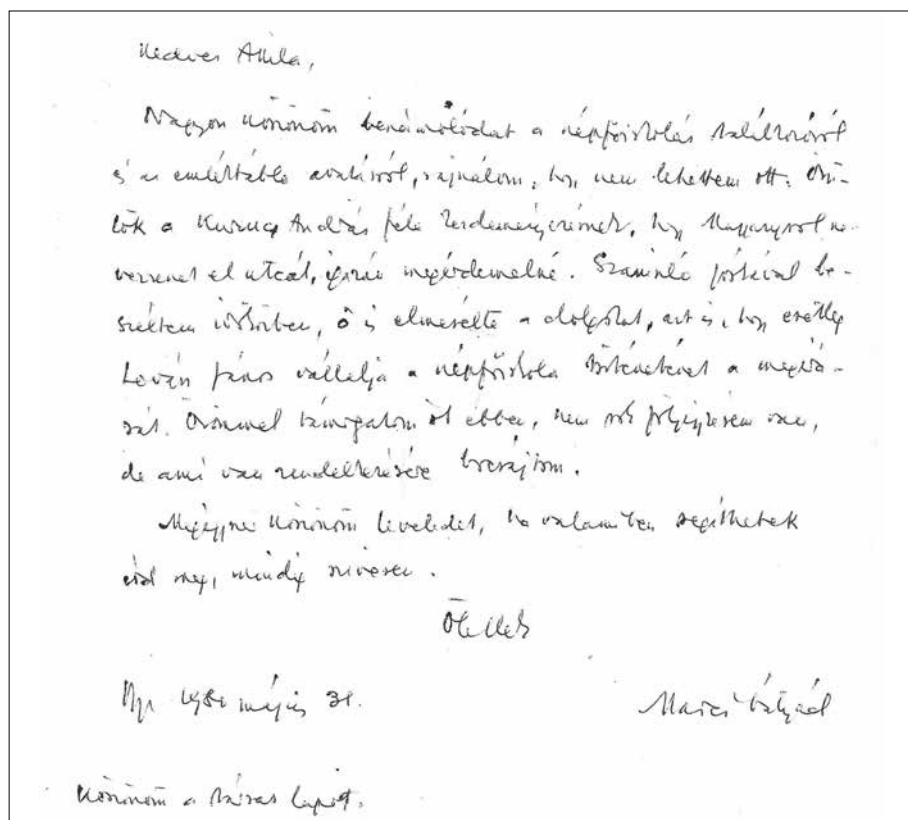 Kedves Attila,
Nagyon köszönöm beszámolódat a népfőiskolás találkozóról
és az emléktábla avatásról, sajnálom, hogy nem lehettem ott. Örü-
lök a Kurucz András féle kezdeményezésnek, hogy Magyaryról ne-
vezzenek el utcát, igazán megérdemelné. Jóskával be-
széltem időközben, ő is elmesélte a dolgokat, azt is, hogy esetleg
János vállalja a népfőiskola történetének a megírá-
sát. Örömmel támogatom őt ebben, nem sok följegyzésem van,
de ami van rendelkezésére bocsájtom.
Mégegyszer köszönöm leveledet, ha valamiben segíthetek
írd meg, mindig szívesen.
Ölellek
május 31.
Marci bátyád
Köszönöm a lapot.